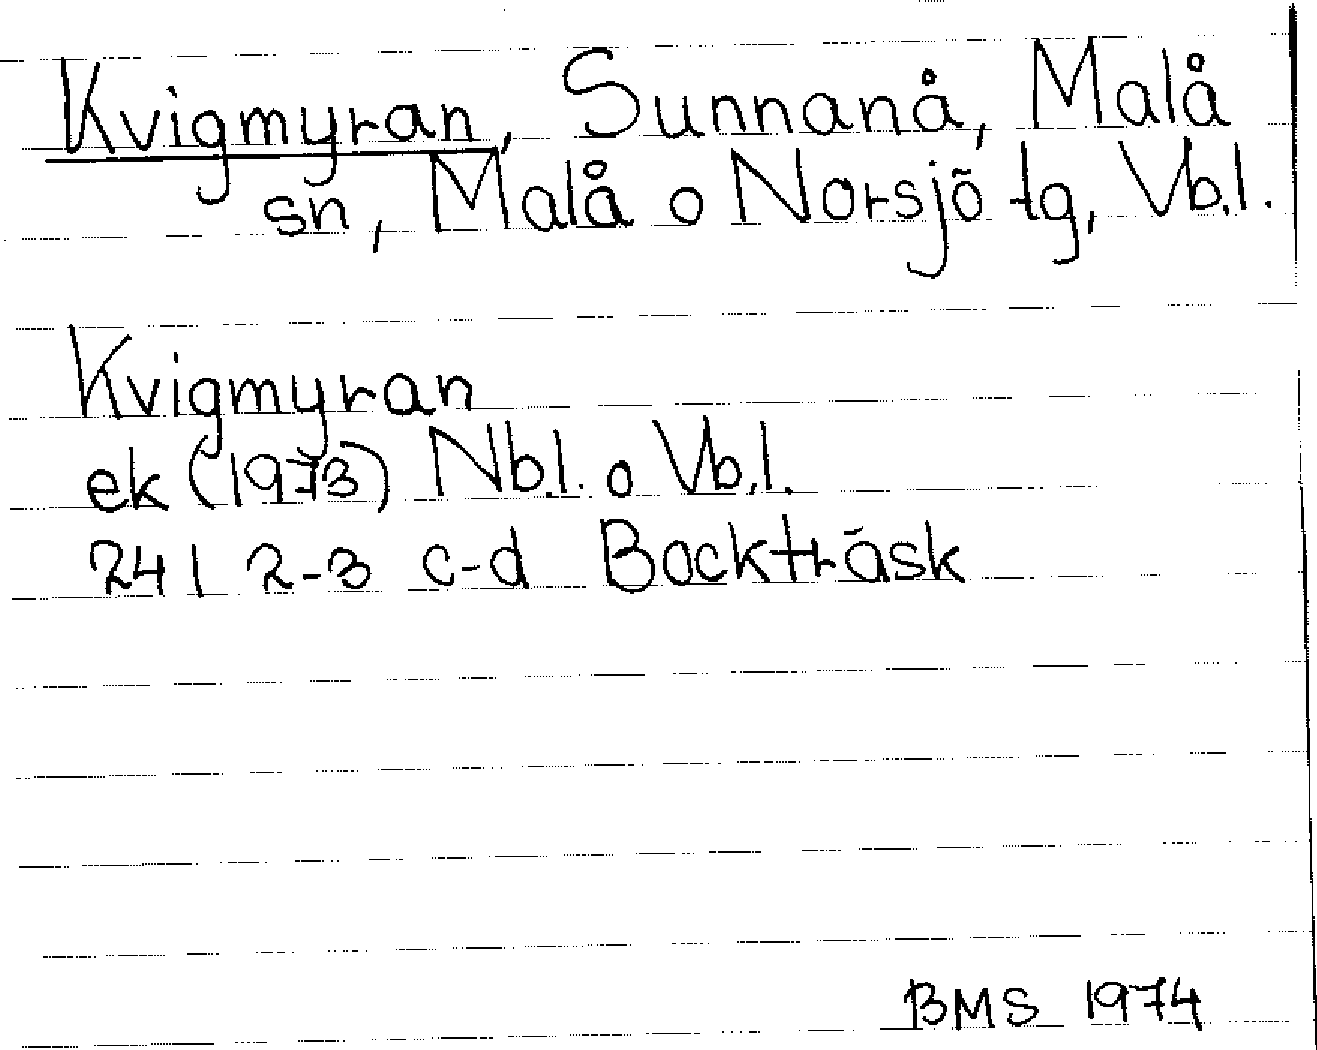 Kvigmyran, Sunnanå, Malå
sn, Malå o Norsjö tg, Vb.l.
Kvigmyran
ek (1973) Nb.l. o Vb.l.
241 2-3 c-d Bockträsk
BMS 1974